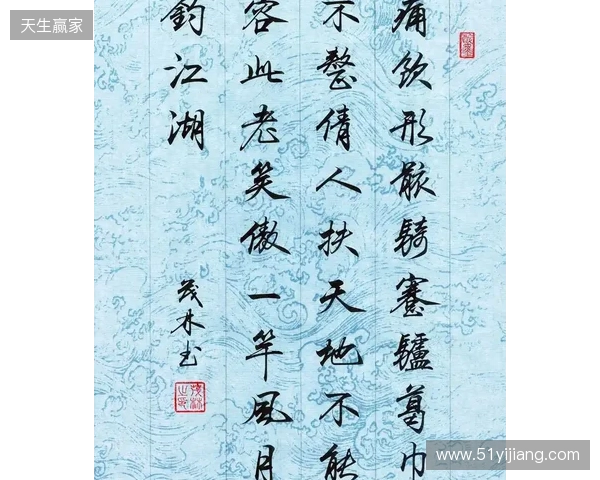 天生赢家
痛飲形骸騎蹇驢葛巾
不整倩人扶天地不能
容此老笑傲一竿風月
釣江湖
茂林书
www.51yijiang.com